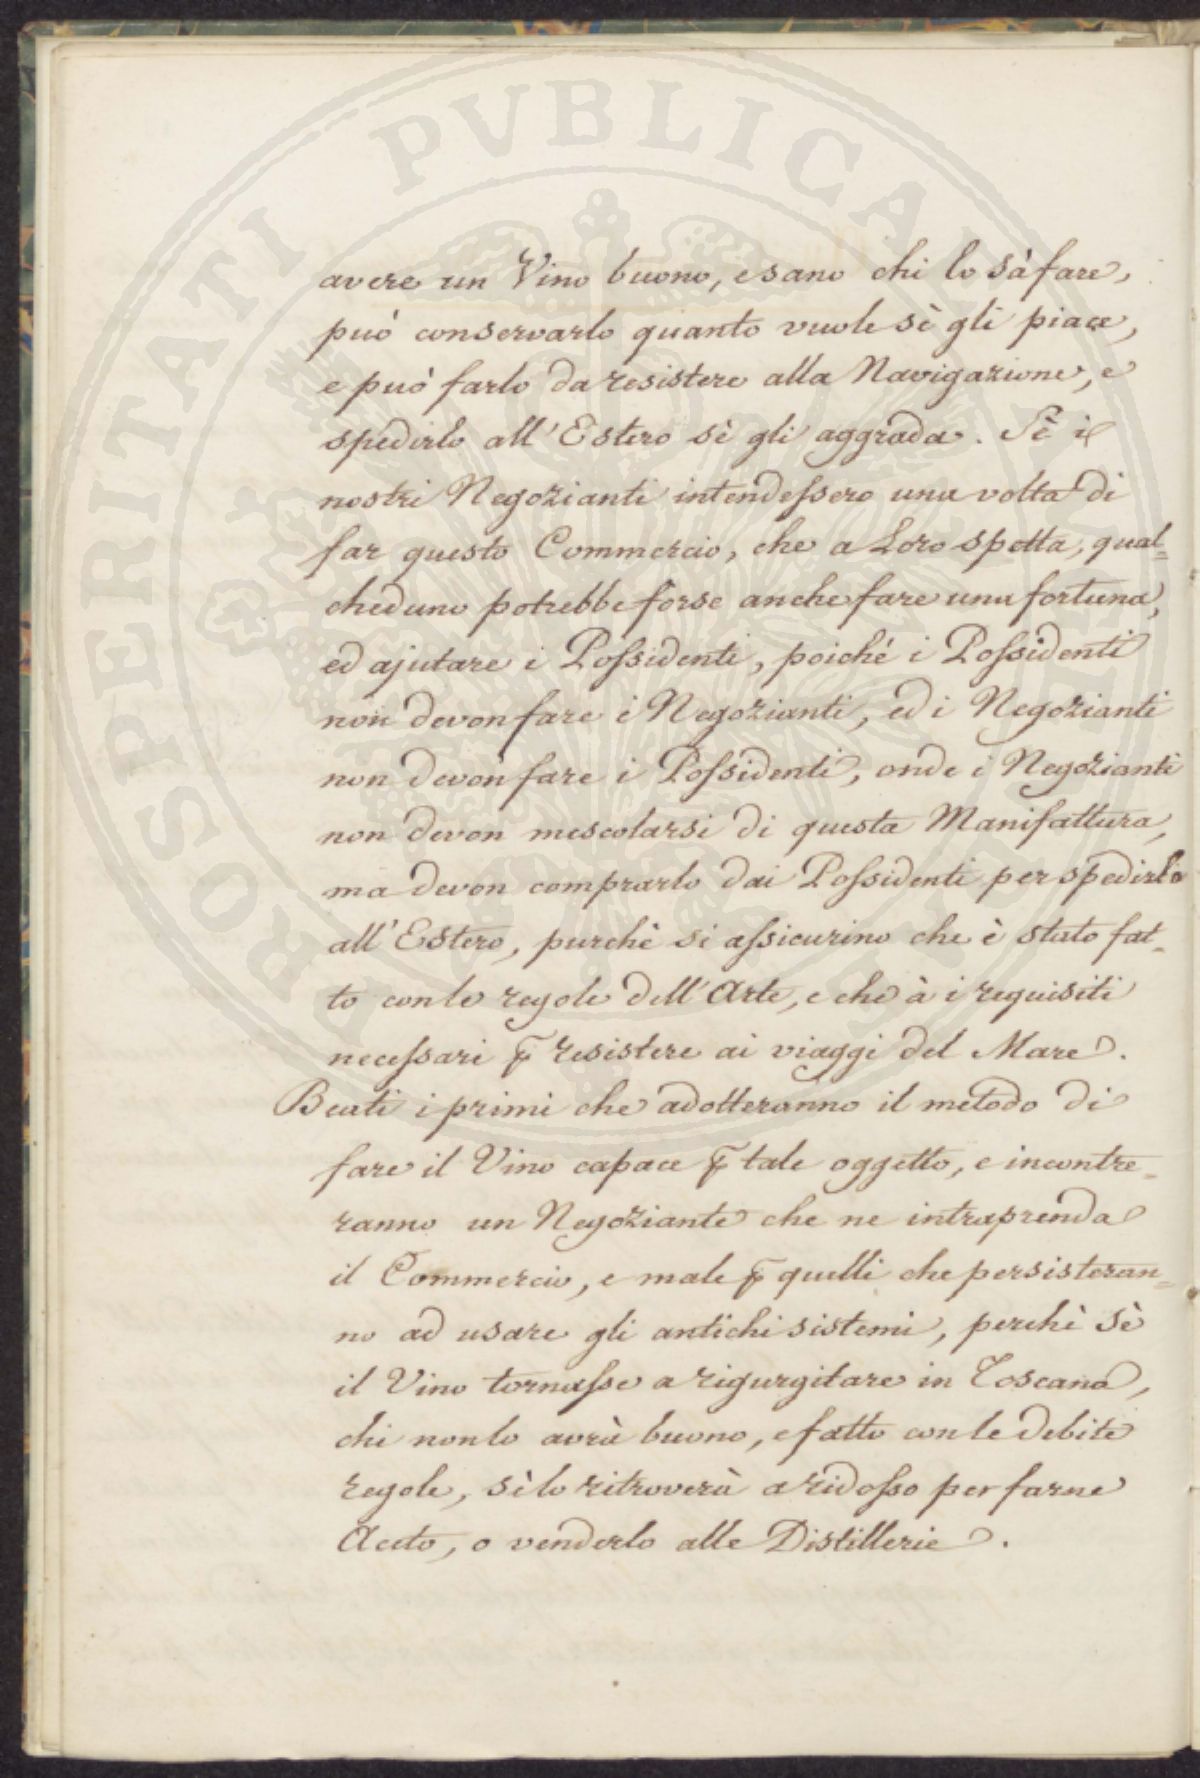 PROSPERITATI PVBLICAE AVGENDAE
avere un Vino buono, e sano chi lo sà fare,
può conservarlo quanto vuole sè gli piace,
e può farlo da resistere alla Navigazione, e
spedirlo all'Estero sè gli aggrada. Sè i
nostri Negozianti intendessero una volta di
far questo Commercio, che a Loro spetta, qual=
cheduno potrebbe forse anche fare una fortuna,
ed ajutare i Possidenti, poiché i Possidenti
non devon fare i Negozianti, ed i Negozianti
non devon fare i Possidenti, onde i Negozianti
non devon mescolarsi di questa Manifattura,
ma devon comprarlo dai Possidenti per spedirlo
all'Estero, purchè si assicurino che è stato fat=
to con le regole dell'Arte, e che à i requisiti
necessari ꝑ resistere ai viaggi del Mare.
Beati i primi che adotteranno il metodo di
fare il Vino capace ꝑ tale oggetto, e incontre=
ranno un Negoziante che ne intraprenda
il Commercio, e male ꝑ quelli che persisteran=
no ad usare gli antichi sistemi, perchè sè
il Vino tornasse a rigurgitare in Toscana,
chi non lo avrà buono, e fatto con le debite
regole, sè lo ritroverà a ridosso per farne
Aceto, o venderlo alle Distillerie.